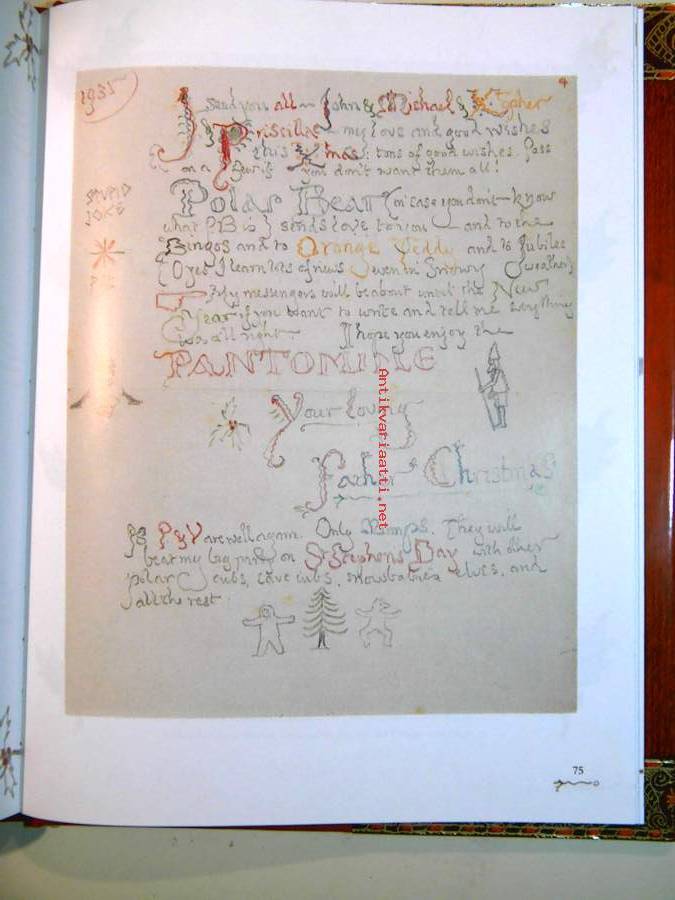 1935
4
I send you all — John & Michael & C'topher
& Priscilla — my love and good wishes
this Xmas: tons of good wishes. Pass
on a few if you don't want them all!
STUPID
JOKE
Polar Bear (in case you don't know
what PB is) sends love to you — and to the
Bingos and to Orange Teddy and to Jubilee
P.B.
(O yes I learn lots of news even in Snowy Weather)
My messengers will be about until the New
Year if you want to write and tell me everything
was all right. I hope you enjoy the
PANTOMIME
Your loving
Father Christmas
PS P&V are well again. Only Mumps. They will
be at my big party on St Stephens Day with other
polar cubs, cave cubs, snowbabies elves, and
all the rest
Antikvariaatti.net
75